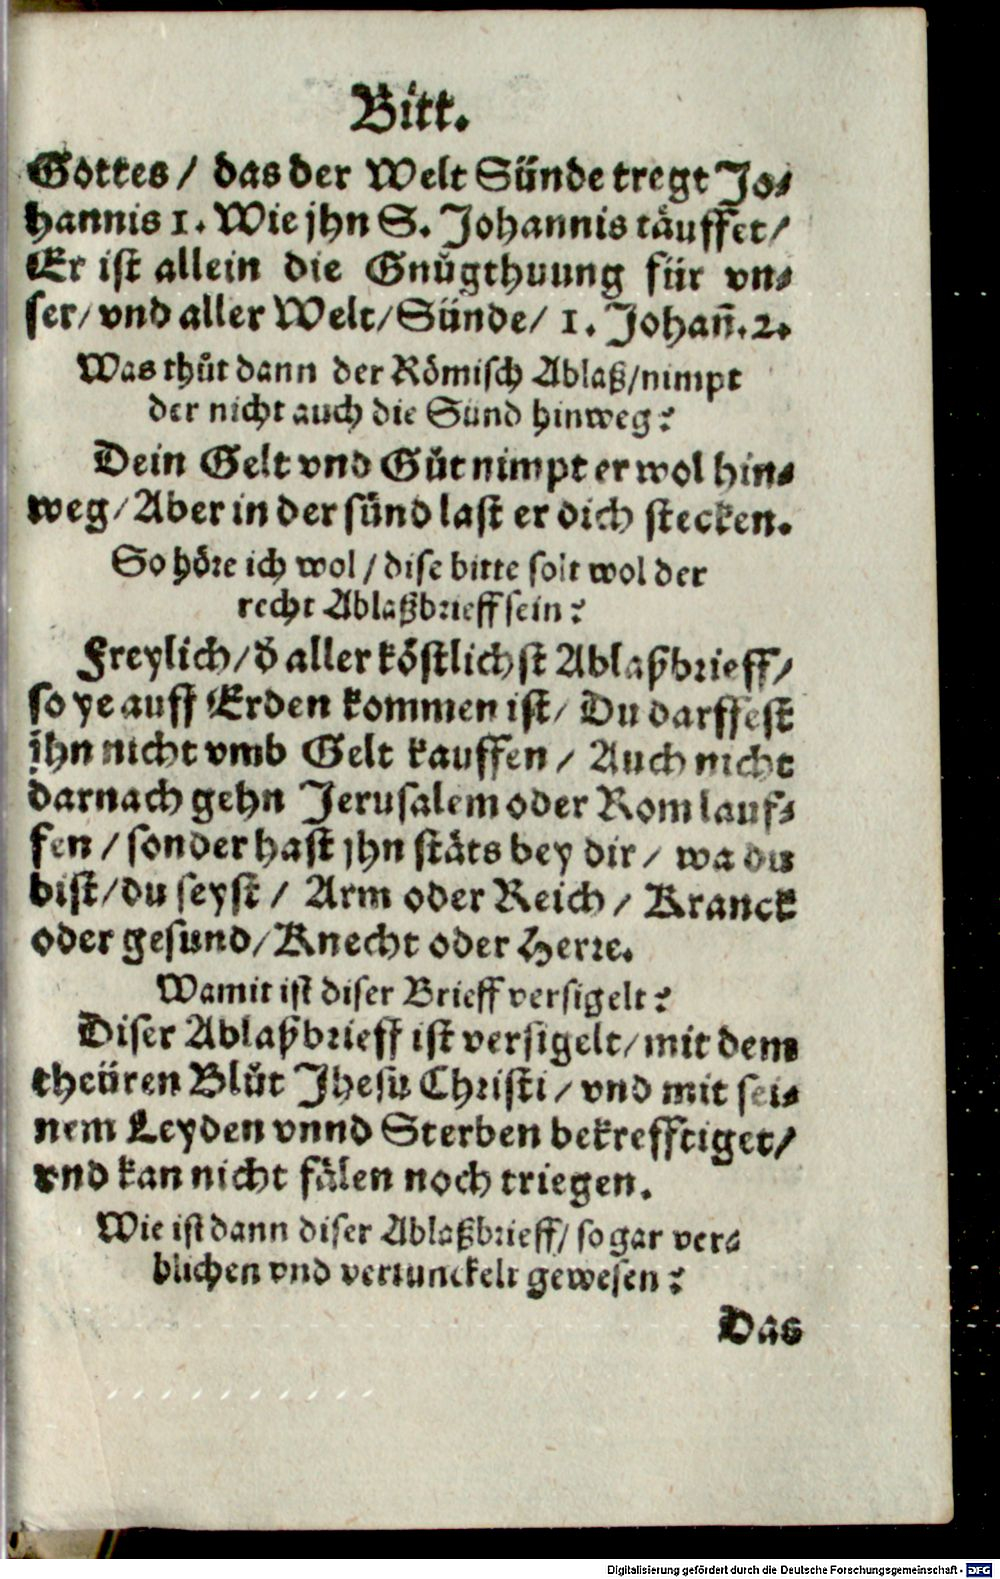 Bitt.
Gottes / das der Welt Sünde tregt Jo⸗
hannis 1. Wie jhn S. Johannis täuffet /
Er ist allein die Gnůgthuung für vn⸗
ser / vnd aller Welt / Sünde / 1. Johañ. 2.
Was thůt dann der Römisch Ablaß / nimpt
der nicht auch die Sünd hinweg?
Dein Gelt vnd Gůt nimpt er wol hin⸗
weg / Aber in der sünd last er dich stecken.
So höre ich wol / dise bitte solt wol der
recht Ablaßbrieff sein?
Freylich / d̄ aller köstlichst Ablaßbrieff /
so ye auff Erden kommen ist / Du darffest
jhn nicht vmb Gelt kauffen / Auch nicht
darnach gehn Jerusalem oder Rom lauf⸗
fen / sonder hast jhn stäts bey dir / wa du
bist / du seyst / Arm oder Reich / Kranck
oder gesund / Knecht oder Herre.
Wamit ist diser Brieff versigelt?
Diser Ablaßbrieff ist versigelt / mit dem
theüren Blůt Jhesu Christi / vnd mit sei⸗
nem Leyden vnnd Sterben bekrefftiget /
vnd kan nicht fälen noch triegen.
Wie ist dann diser Ablaßbrieff / so gar ver⸗
blichen vnd vertunckelt gewesen?
Das
Digitalisierung gefördert durch die Deutsche Forschungsgemeinschaft - DFG